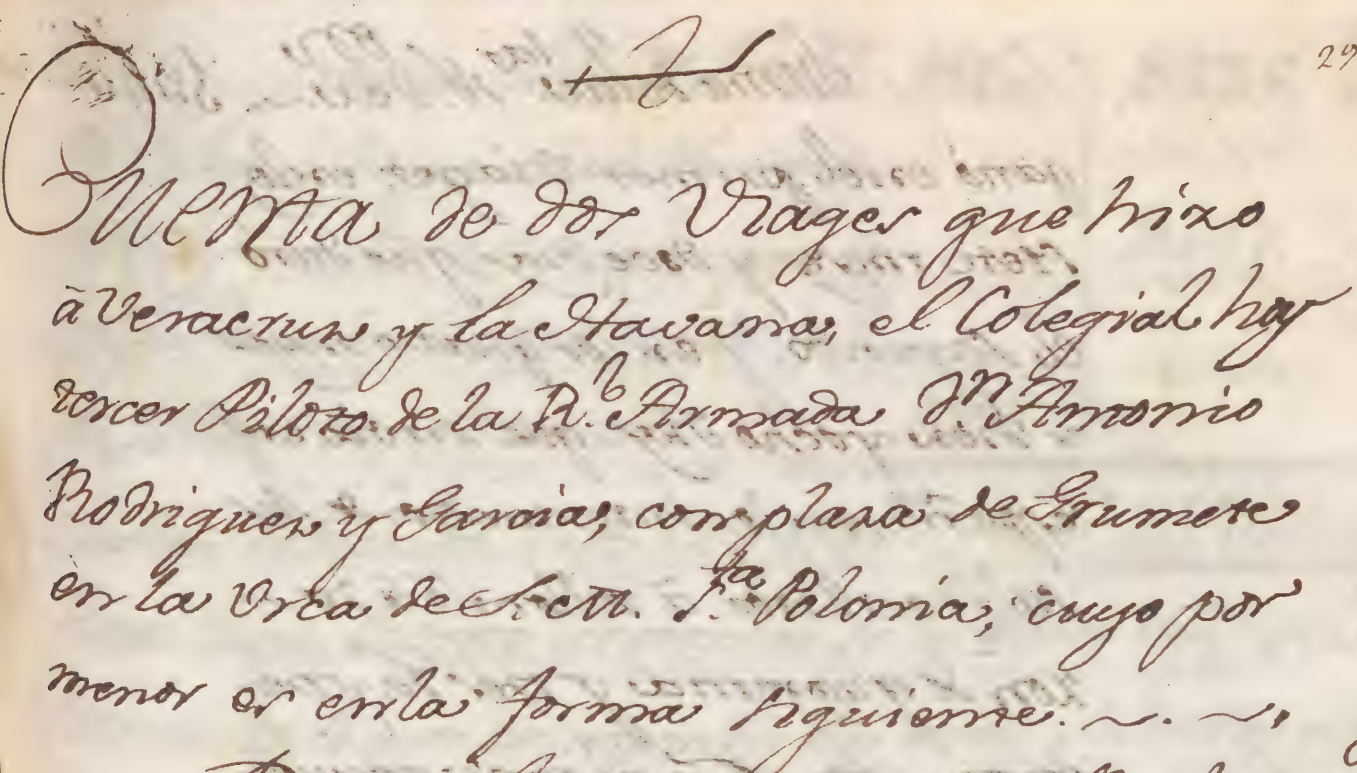 29
Cuenta de dos Viages que hizo
à Veracruz y la Havana, el Colegial hoy
tercer Piloto de la R.l Armada D.n Antonio
Rodriguez y Garcia, con plaza de Grumete
en la Urca de S. M. S.ta Polonia, cuyo por
menor es en la forma siguiente.